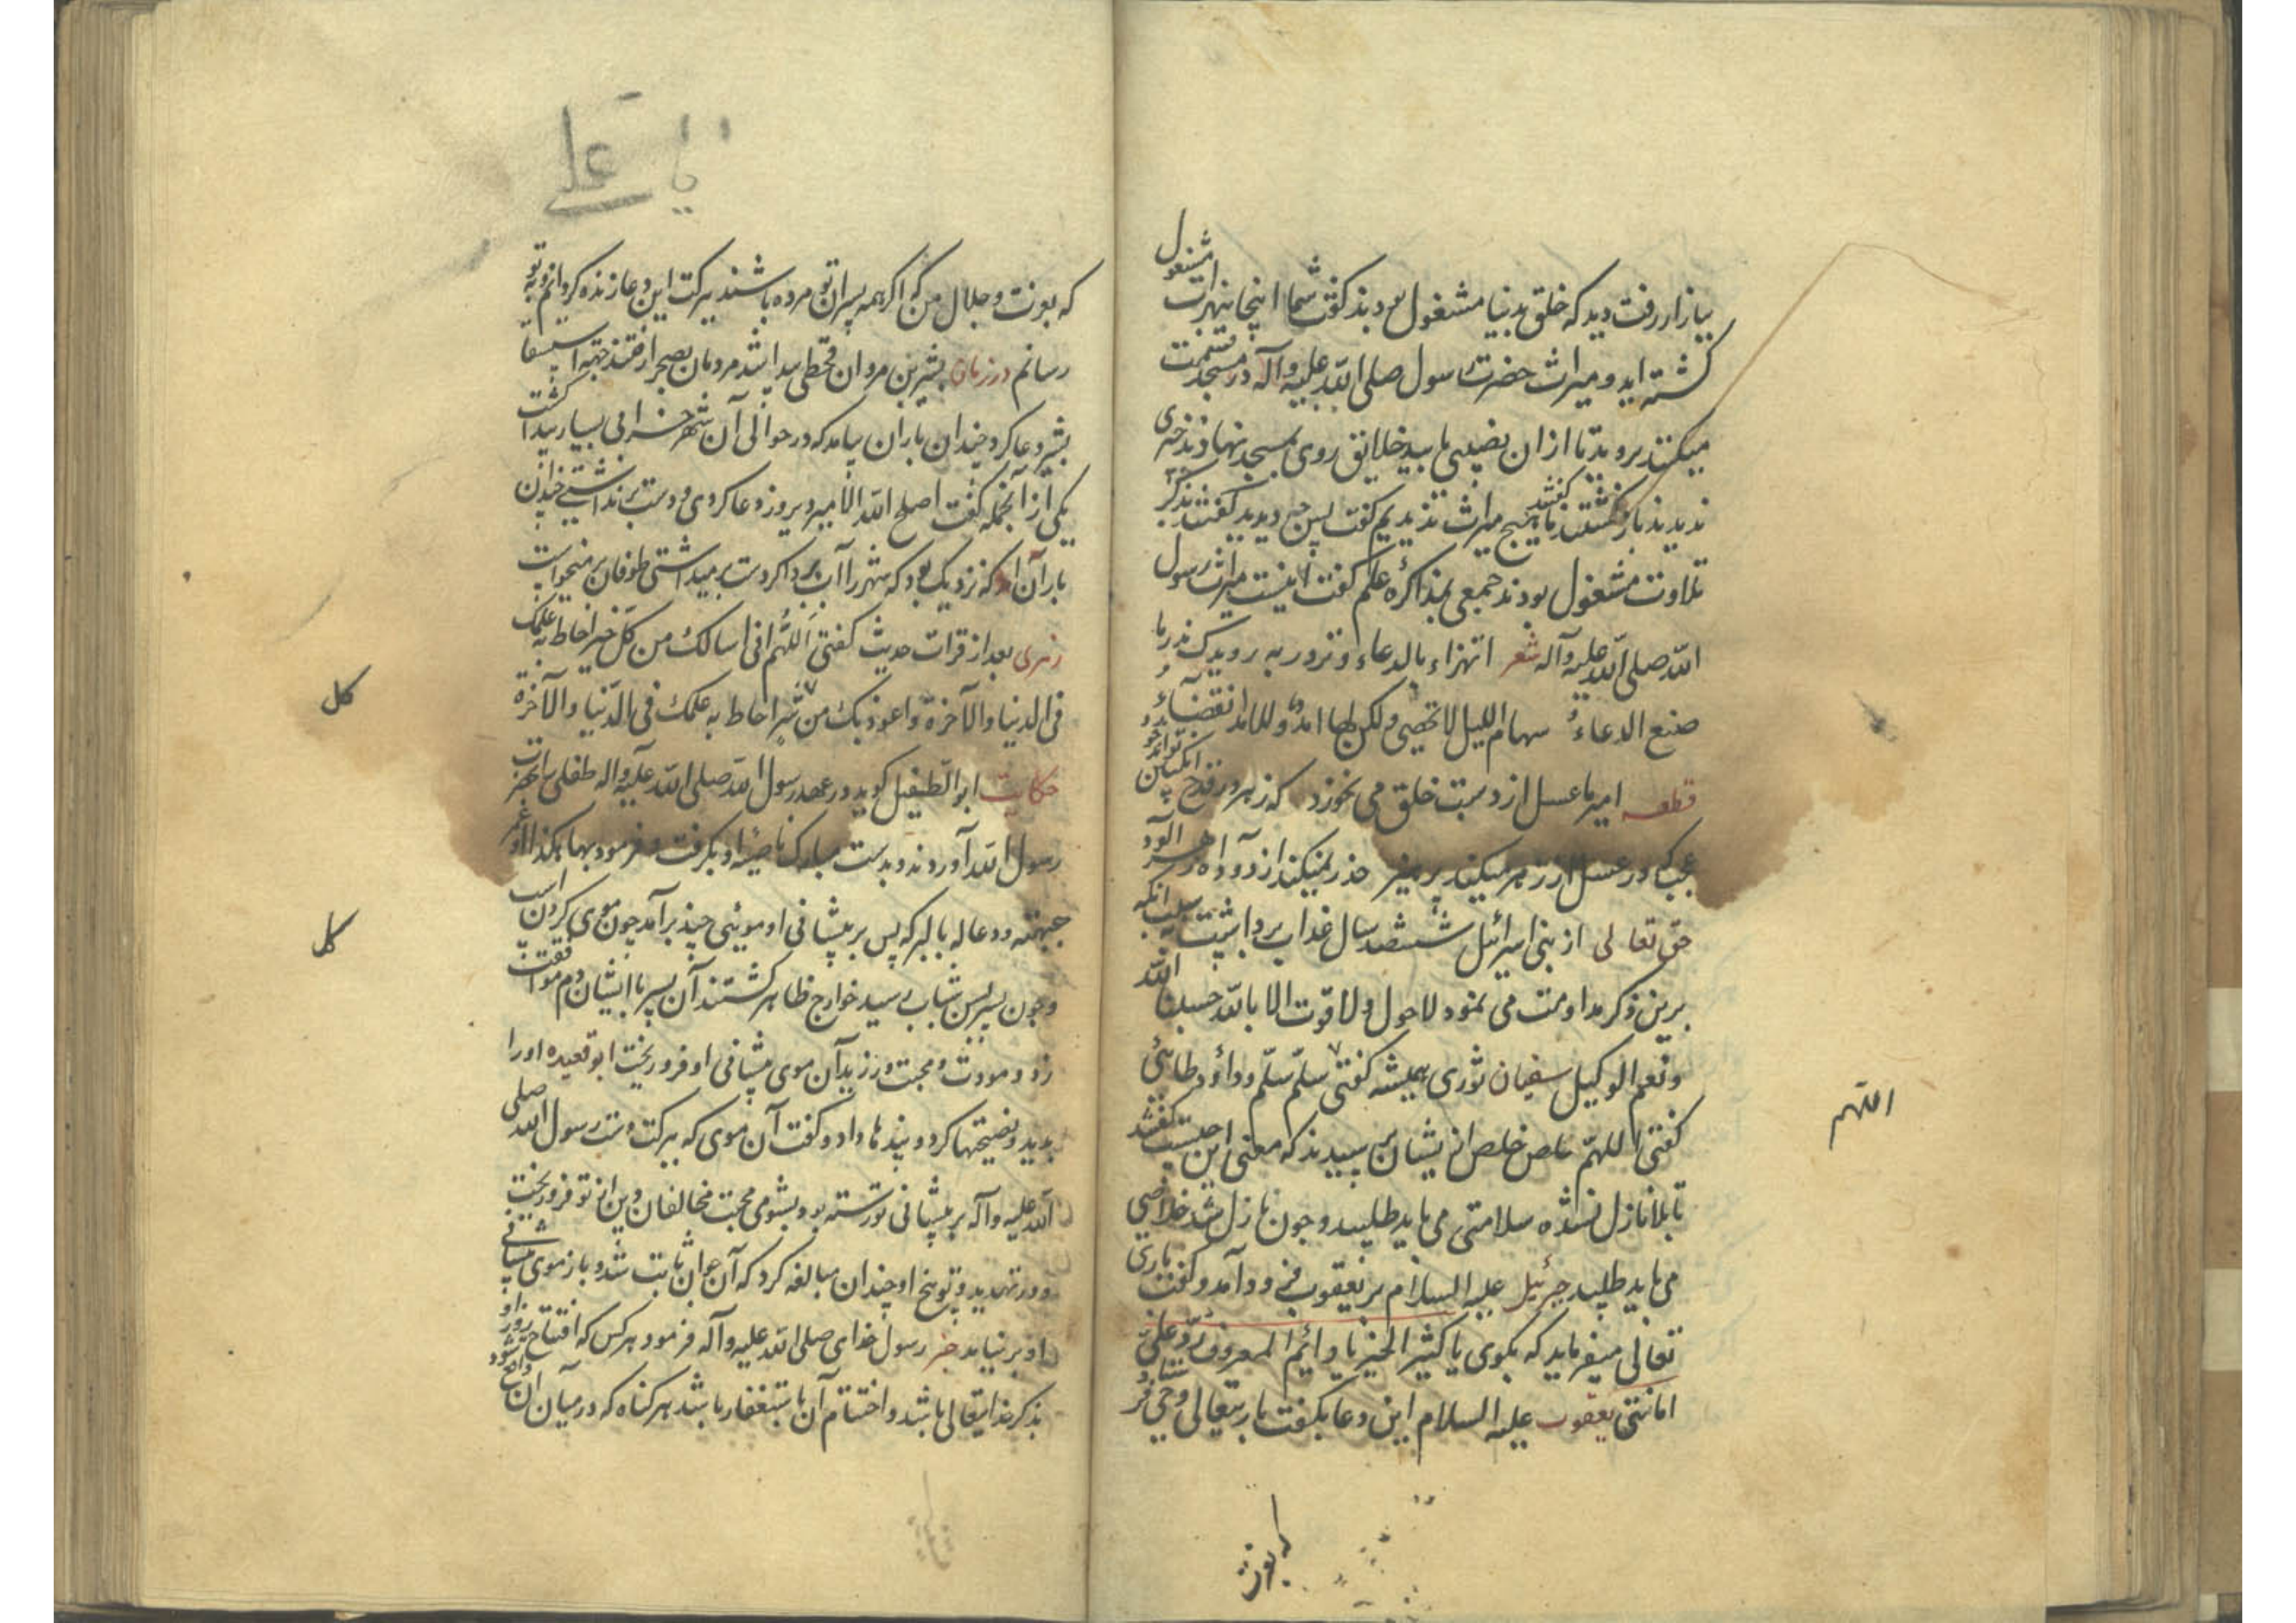 ببازار رفت دید که خلق بدنیا مشغول بودند کفت شما اینجا بتجارت مشغول
کشته اید و میراث حضرت رسول صلی الله علیه وآله در مسجد قسمت
میکنند بروید تا از ان نصیبی یابید خلایق روی بمسجد نهادند خبری
ندیدند باز کشتند کفتند ما هیچ میراث ندیدیم کفت پس چه دیدید کفتند ذکر
تلاوت مشغول بودند جمعی بمذاکره علم کفت اینست میراث رسول
الله صلی الله علیه وآله شعر اتهزاء بالدعاء و تزدریه رویدک تدر ما
صنع الدعاء سهام اللیل لا تخطی ولکن لها امد وللامد انقضاء
قطعه امیر ما عسل از دست خلق می نخورد که زهر در قدح انکبین تواند بود
عجب که در عسل از زهر میکند پرهیز حذر نمیکند از دود آه زهر آلود
حق تعالی از بنی اسرائیل ششصد سال عذاب برداشت بسبب انکه
برین ذکر مداومت می نمود لا حول ولا قوت الا بالله حسبنا الله
ونعم الوکیل سفیان ثوری همیشه کفتی سلم سلم و داؤد طائی
کفتی اللهم خلص خلص از یشان پرسیدند که معنی این چیست کفتند
تا بلا نازل نشده سلامتی می باید طلبید و چون نازل شد خلاصی
می باید طلبید جبرئیل علیه السلام بر یعقوب فرود آمد و کفت باری
تعالی میفرماید که بکوی یا کثیر الخیر یا دائم المعروف رد علی
امانتی یعقوب علیه السلام این دعا بکفت باریتعالی وحی فرستاد
اللهم
که بعزت
یا علی
که بعزت و جلال من که اکر همه پسران تو مرده باشند ببرکت این دعا زنده کردانم و بتو
رسانم در زمان بشر بن مروان قحطی پیدا شد مردمان بصحرا رفتند جهة استسقا
بشر دعا کرد چندان باران بیامد که در حوالی آن شهر خرابی بسیار پیدا کشت
یکی از آنجمله کفت اصلح الله الامیر دیروز دعا کردی و دست برنداشتی چندان
باران آمد که نزدیک بود که شهر را آب برد اکر دست برمیداشتی طوفان برمیخواست
زهری بعد از قرات حدیث کفتی اللهم انی اسالک من کل خیر احاط به علمک
فی الدنیا والآخرة واعوذ بک من شر احاط به علمک فی الدنیا والآخرة
حکایت ابو الطفیل کوید در عهد رسول الله صلی الله علیه واله طفلی را بحضرت
رسول الله آوردند و بدست مبارک ناصیه او بکرفت و فرمود بها هکذا او غمز
جبهته و دعا له بالبرکه پس بر پیشانی او موئی چند برآمد چون موی کردن اسب
و چون پسر بسن شباب رسید خوارج ظاهر کشتند آن پسر با ایشان دم موافقت
زد و مودت و محبت ورزید آن موی پیشانی او فرو ریخت ابو قعیده او را
بدید و نصیحتها کرد و پندها داد و کفت آن موی که ببرکت دست رسول الله صلی
الله علیه وآله بر پیشانی تو رسته بود بشومی محبت مخالفان دین از تو فرو ریخت
و در تهدید و توبیخ او چندان مبالغه کرد که آن جوان ثابت شد و باز موی پیشانی
او برنیامد خبر رسول خدای صلی الله علیه وآله فرمود هر کس که افتتاح روز او
بذکر خدایتعالی باشد و اختتام آن باستغفار باشد هر کناه که در میان ان واقع شود
کل
کل